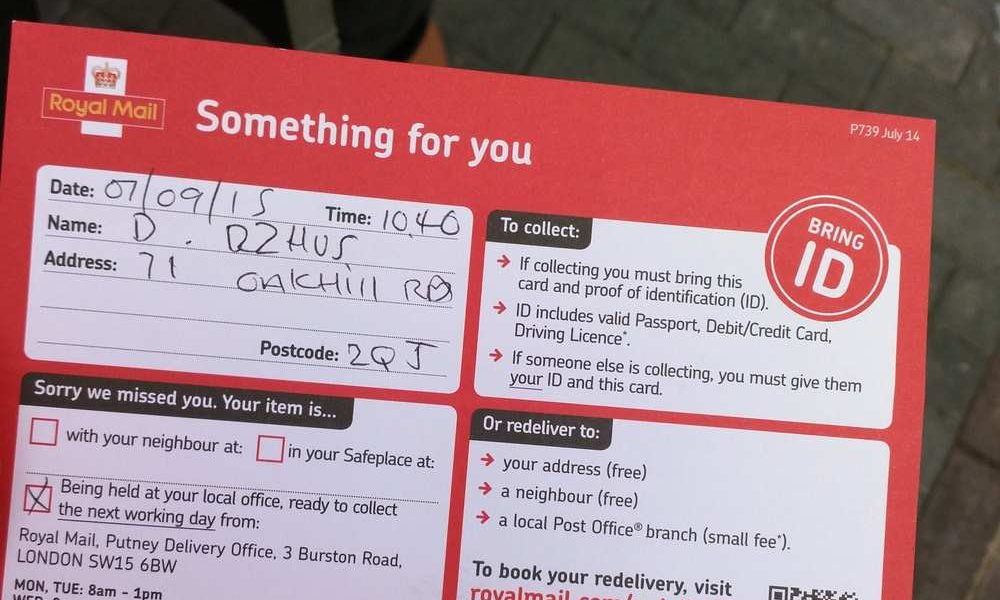 Royal Mail
Something for you
P739 July 14
Date: 07/09/15 Time: 10.40
Name: D. RZHUS
Address: 71 OAKHill RD
Postcode: 2QJ
To collect:
BRING ID
→ If collecting you must bring this
card and proof of identification (ID).
→ ID includes valid Passport, Debit/Credit Card,
Driving Licence*.
→ If someone else is collecting, you must give them
your ID and this card.
Sorry we missed you. Your item is...
with your neighbour at: in your Safeplace at:
Being held at your local office, ready to collect
the next working day from:
Royal Mail, Putney Delivery Office, 3 Burston Road,
LONDON SW15 6BW
MON, TUE: 8am - 1pm
Or redeliver to:
→ your address (free)
→ a neighbour (free)
→ a local Post Office® branch (small fee*).
To book your redelivery, visit